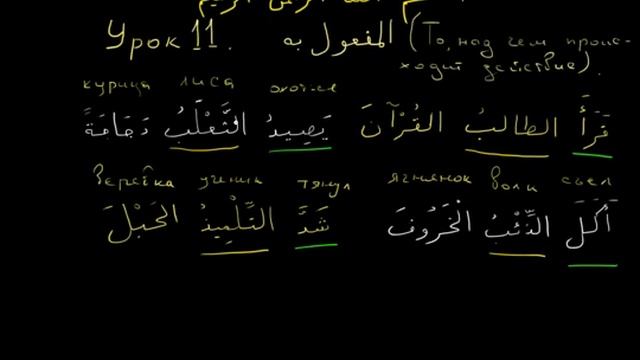 بسم الله الرحمن الرحيم
Урок 11. المفعول به (То, над чем проис-
ходит действие).
курица лиса охот-ся
قَرَأَ الطالبُ القُرْآنَ يَصِيدُ الثَّعْلَبُ دَجَاجَةً
верёвка ученик тянул ягнянок волк съел
أَكَلَ الذِّئْبُ الْخَرُوفَ شَدَّ التِّلْمِيذُ الحَبْلَ